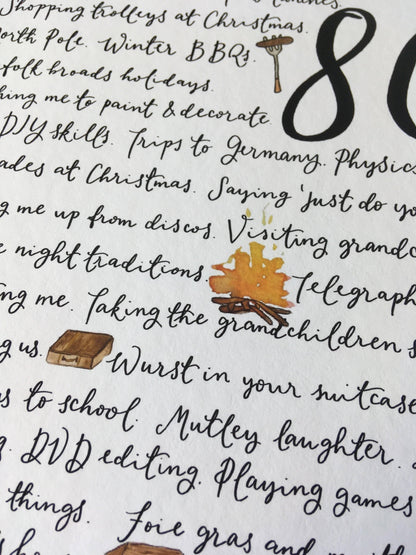 Shopping trolleys at Christmas.
North Pole. Winter BBQs.
folk broads holidays.
me to paint & decorate
80
DIY skills. Trips to Germany. Physics
at Christmas. Saying 'just do yo
me up from discos. Visiting grandc
night traditions. Telegraph
me. Taking the grandchildren s
us. Wurst in your suitcase
to school. Mutley laughter.
DVD editing. Playing games
things. Foie gras and